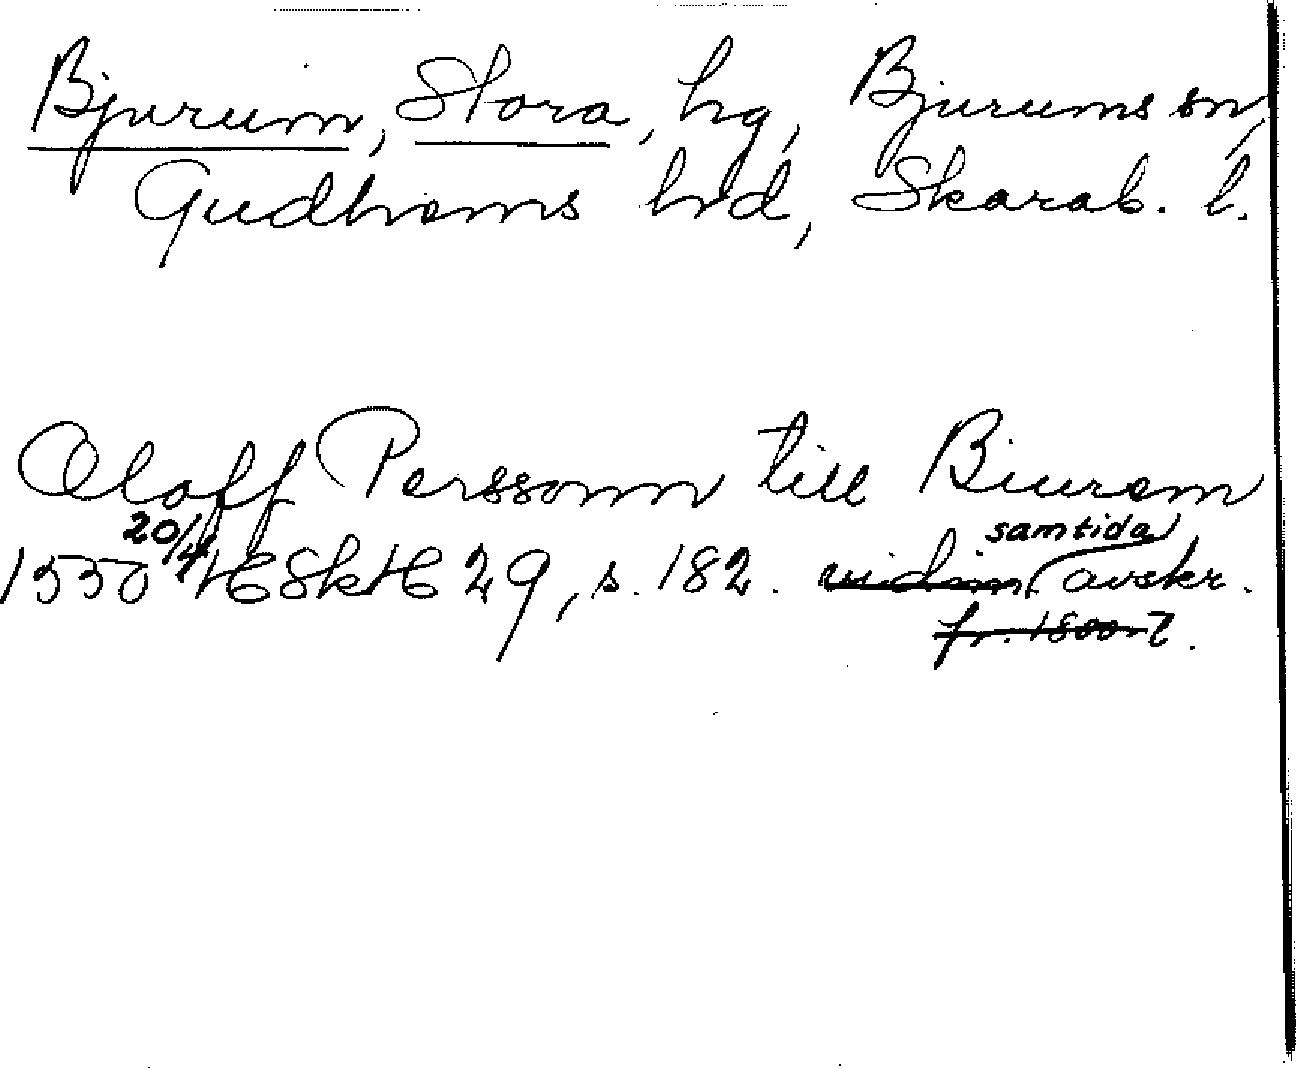 Bjurum, Stora, hg, Bjurums sn,
Gudhems hd, Skarab. l.
Oloff Perssonn till Biurem
samtida
1550 20/4 HSH 29, s. 182. vidim. avskr.
fr. 1800-t.